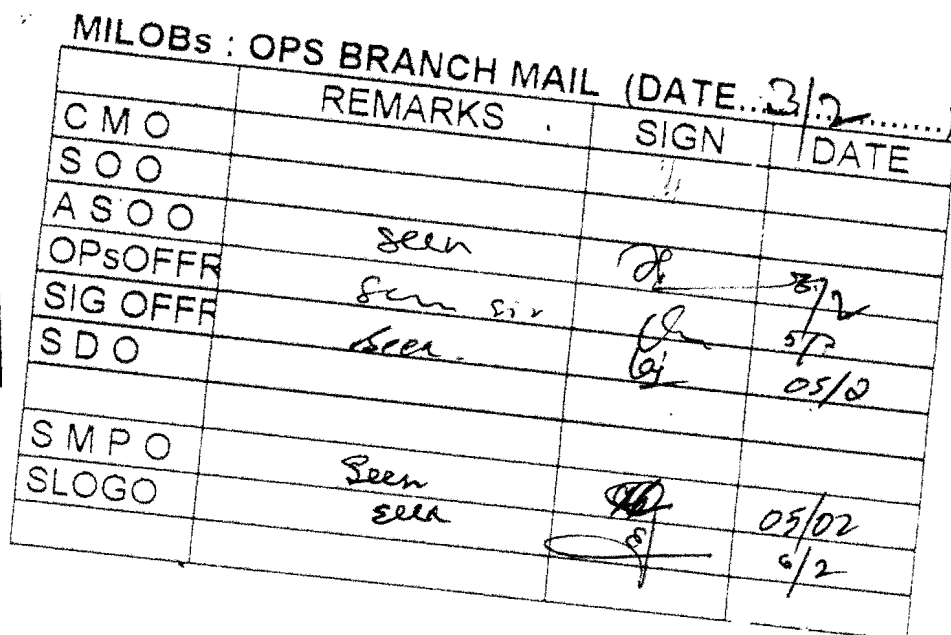 MILOBs : OPS BRANCH MAIL (DATE...3/2........)
REMARKS SIGN DATE
C M O
S O O
A S O O seen 3/2
OPsOFFR Seen sir 5/2
SIG OFFR seen. 05/2
S D O
S M P O Seen 05/02
SLOGO seen 6/2